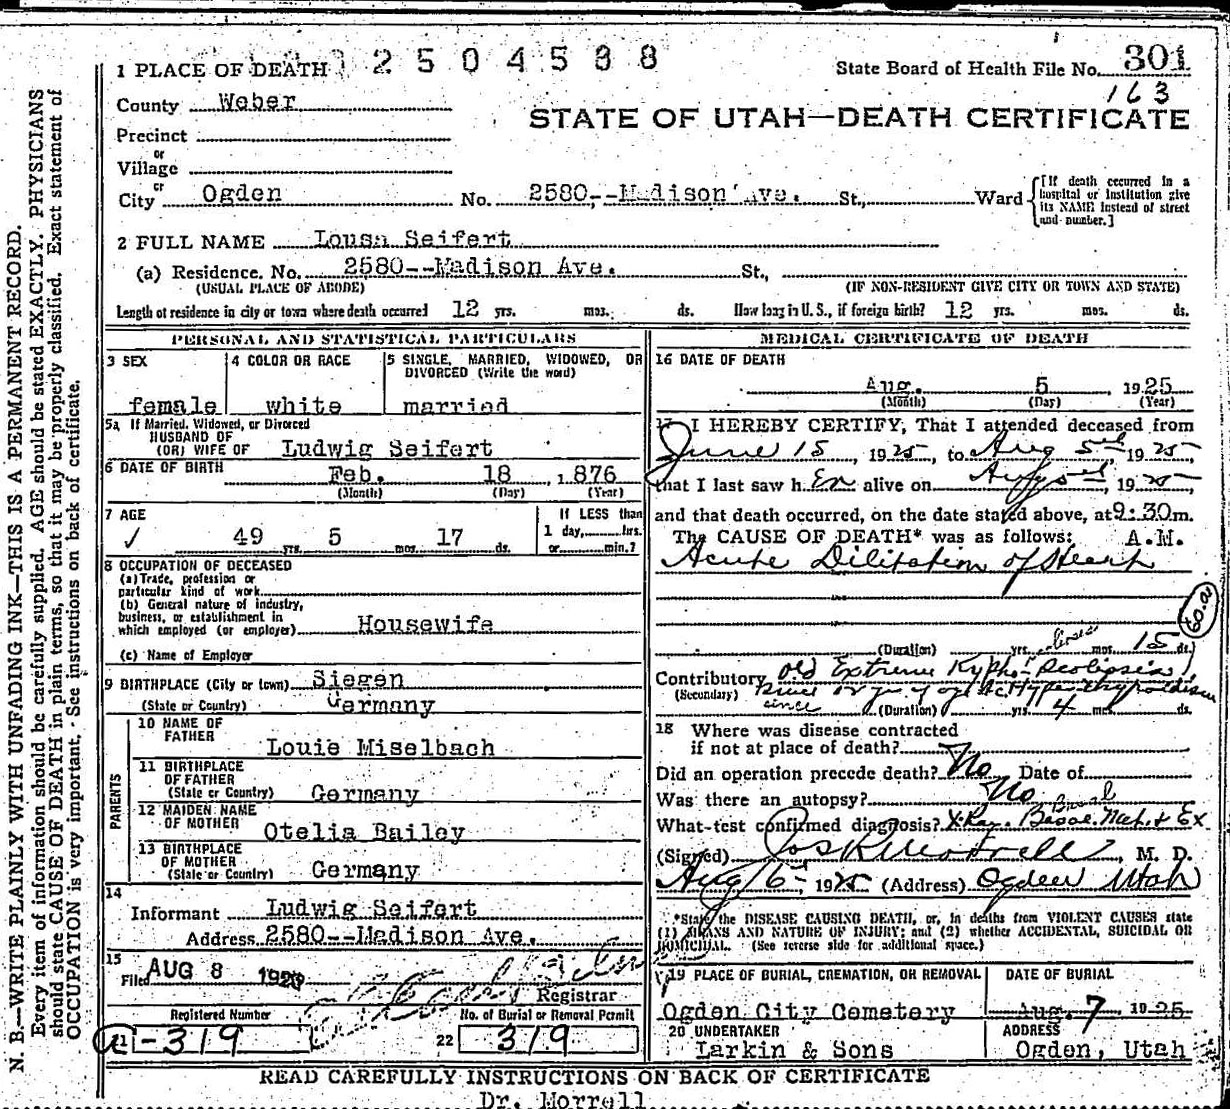 2504538
1 PLACE OF DEATH
State Board of Health File No. 301
163
County Weber
STATE OF UTAH—DEATH CERTIFICATE
Precinct
or
Village
or
City Ogden No. 2580--Madison Ave. St., Ward
[If death occurred in a hospital or institution give its NAME instead of street and number.]
2 FULL NAME Lousa Seifert
(a) Residence. No. 2580--Madison Ave. St.,
(USUAL PLACE OF ABODE) (IF NON-RESIDENT GIVE CITY OR TOWN AND STATE)
Length of residence in city or town where death occurred 12 yrs. mos. ds. How long in U. S., if foreign birth? 12 yrs. mos. ds.
PERSONAL AND STATISTICAL PARTICULARS
3 SEX
female
4 COLOR OR RACE
white
5 SINGLE, MARRIED, WIDOWED, OR DIVORCED (Write the word)
married
5a If Married, Widowed, or Divorced
HUSBAND OF
(OR) WIFE OF Ludwig Seifert
6 DATE OF BIRTH Feb. 18 , 1876
(Month) (Day) (Year)
7 AGE
✓ 49 yrs. 5 mos. 17 ds.
If LESS than
1 day, hrs.
or min.?
8 OCCUPATION OF DECEASED
(a) Trade, profession or
particular kind of work
(b) General nature of industry,
business, or establishment in
which employed (or employer) Housewife
(c) Name of Employer
9 BIRTHPLACE (City or town) Siegen
(State or Country) Germany
PARENTS
10 NAME OF
FATHER Louie Miselbach
11 BIRTHPLACE
OF FATHER
(State or Country) Germany
12 MAIDEN NAME
OF MOTHER Otelia Bailey
13 BIRTHPLACE
OF MOTHER
(State or Country) Germany
14
Informant Ludwig Seifert
Address 2580--Madison Ave.
15
Filed AUG 8 192
Registrar
Registered Number
21 -319
No. of Burial or Removal Permit
22 319
MEDICAL CERTIFICATE OF DEATH
16 DATE OF DEATH
Aug. 5 1925
(Month) (Day) (Year)
17 I HEREBY CERTIFY, That I attended deceased from
June 15, 1925, to Aug 5th, 1925,
that I last saw h Er alive on , 1925,
and that death occurred, on the date stated above, at 9:30m.
The CAUSE OF DEATH* was as follows: A.M.
Acute Dilitation of Heart
(Duration) yrs. mos. 15 ds.
Contributory Old Extreme Kypho
(Secondary) Hyperthyroidism
since (Duration) yrs. 4 mos. ds.
18 Where was disease contracted
if not at place of death?
Did an operation precede death? No Date of
Was there an autopsy? No
Basal
What test confirmed diagnosis? X-Ray. & Ex
(Signed) Jos R Morrell, M. D.
Aug 6 1925 (Address) Ogden Utah
*State the DISEASE CAUSING DEATH, or, in deaths from VIOLENT CAUSES state
(1) MEANS AND NATURE OF INJURY; and (2) whether ACCIDENTAL, SUICIDAL OR
HOMICIDAL. (See reverse side for additional space.)
19 PLACE OF BURIAL, CREMATION, OR REMOVAL
Ogden City Cemetery
DATE OF BURIAL
Aug. 7 1925
20 UNDERTAKER
Larkin & Sons
ADDRESS
Ogden, Utah
READ CAREFULLY INSTRUCTIONS ON BACK OF CERTIFICATE
Dr. Morrell
N. B.—WRITE PLAINLY WITH UNFADING INK—THIS IS A PERMANENT RECORD.
Every item of information should be carefully supplied. AGE should be stated EXACTLY. PHYSICIANS
should state CAUSE OF DEATH in plain terms, so that it may be properly classified. Exact statement of
OCCUPATION is very important. See instructions on back of certificate.